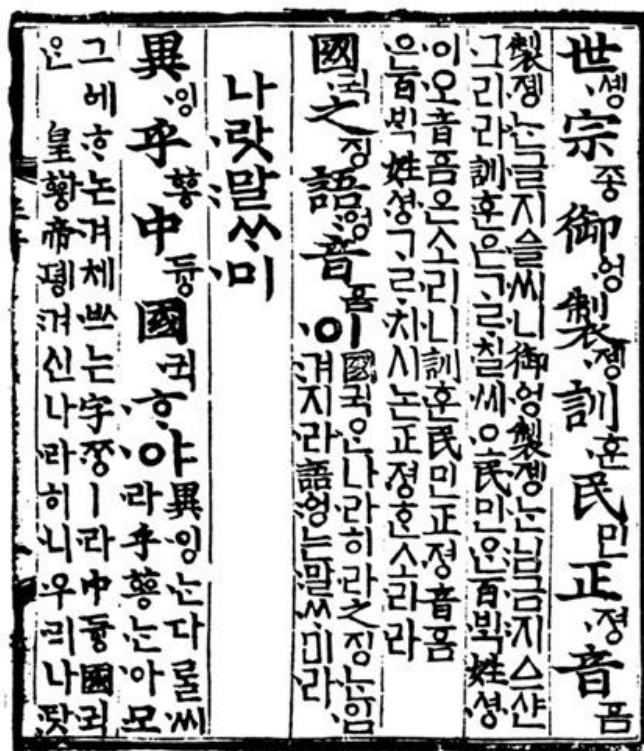 世솅宗종御엉製졩訓훈民민正졍音ᅙᅳᆷ
製졩는글지ᅀᅳᆯ씨니御엉製졩ᄂᆞᆫ님금지ᅀᅳ샨
그리라訓훈은ᄀᆞᄅᆞ칠씨오民민ᄋᆞᆫ百ᄇᆡᆨ姓셩
이오音ᅙᅳᆷ은소리니訓훈民민正졍音ᅙᅳᆷ
은百ᄇᆡᆨ姓셩ᄀᆞᄅᆞ치시논正졍ᄒᆞᆫ소리라
國귁之징語ᅌᅥᆼ音ᅙᅳᆷ이
國귁ᄋᆞᆫ나라히라之징ᄂᆞᆫ입
겨지라語ᅌᅥᆼ는말ᄊᆞ미라
나랏말ᄊᆞ미
異잉乎ᅘᅩᆼ中듀ᇰ國귁ᄒᆞ야
異잉ᄂᆞᆫ다ᄅᆞᆯ씨
라乎ᅘᅩᆼᄂᆞᆫ아모
그에ᄒᆞ논겨체ᄡᅳ는字ᄍᆞᆼㅣ라中듀ᇰ國귁
ᄋᆞᆫ皇ᅘᅪᆼ帝뎽겨신나라히니우리나랏